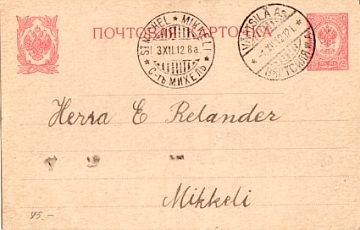 ПОЧТОВАЯ КАРТОЧКА
ST MICHEL * MIKKELI
3 XII.12 8 a.
С-тъ МИХЕЛЬ
Herra E Relander
Mikkeli
45.-